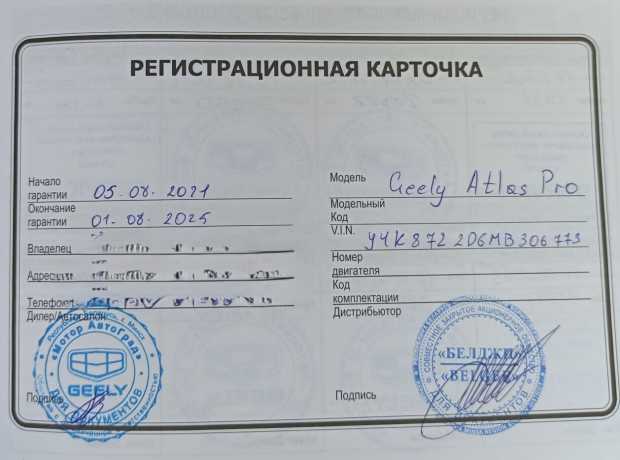 РЕГИСТРАЦИОННАЯ КАРТОЧКА
Начало
гарантии 05-08-2021
Окончание
гарантии 01-08-2025
Владелец
Адрес
Телефон
Дилер/Автосалон
«Мотор АвтоГрад»
GEELY
ДЛЯ ДОКУМЕНТОВ
Подпись
Модель Geely Atlas Pro
Модельный
Код
V.I.N. Y4K8722D6MB306773
Номер
двигателя
Код
комплектации
Дистрибьютор
СОВМЕСТНОЕ ЗАКРЫТОЕ АКЦИОНЕРНОЕ ОБЩЕСТВО
«БЕЛДЖИ»
«BELGEE»
ДЛЯ ДОКУМЕНТОВ
Подпись